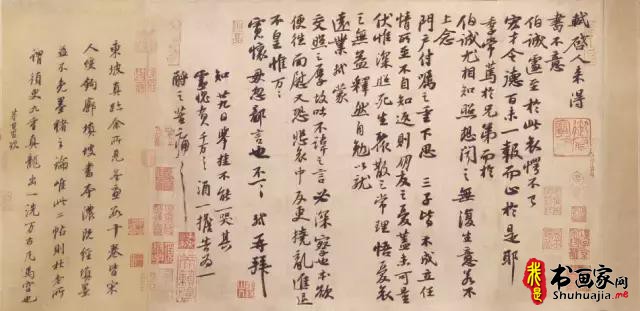 軾啓人来得
書不意
伯誠遽至於此哀愕不已
宏才令德百未一報而止於是耶
季常篤於兄弟而於
伯誠尤相知照想聞之無復生意若不
上念
門戶付囑之重下思三子皆不成立任
情所至不自知返則朋友之憂蓋未可量
伏惟深照死生聚散之常理悟憂哀
之無益釋然自勉以就
遠業軾蒙
交照之厚故吐不諱之言必深察也本欲
便往面慰又恐悲哀中反更撓亂進退
不皇惟万万
寬懷毋忽鄙言也不一一 軾再拜
知廿九日舉挂不能一哭其
靈愧負千万千万酒一擔告為一
酹之苦痛苦痛
東坡真跡余所見無慮十卷皆宋
人雙鉤廓填坡書本濃既經填墨
益不免墨豬之論唯此二帖則杜老所
謂須臾九重真龍出一洗万古凡馬空也
董其昌跋
我是
书画家网
Shuhuajia.net